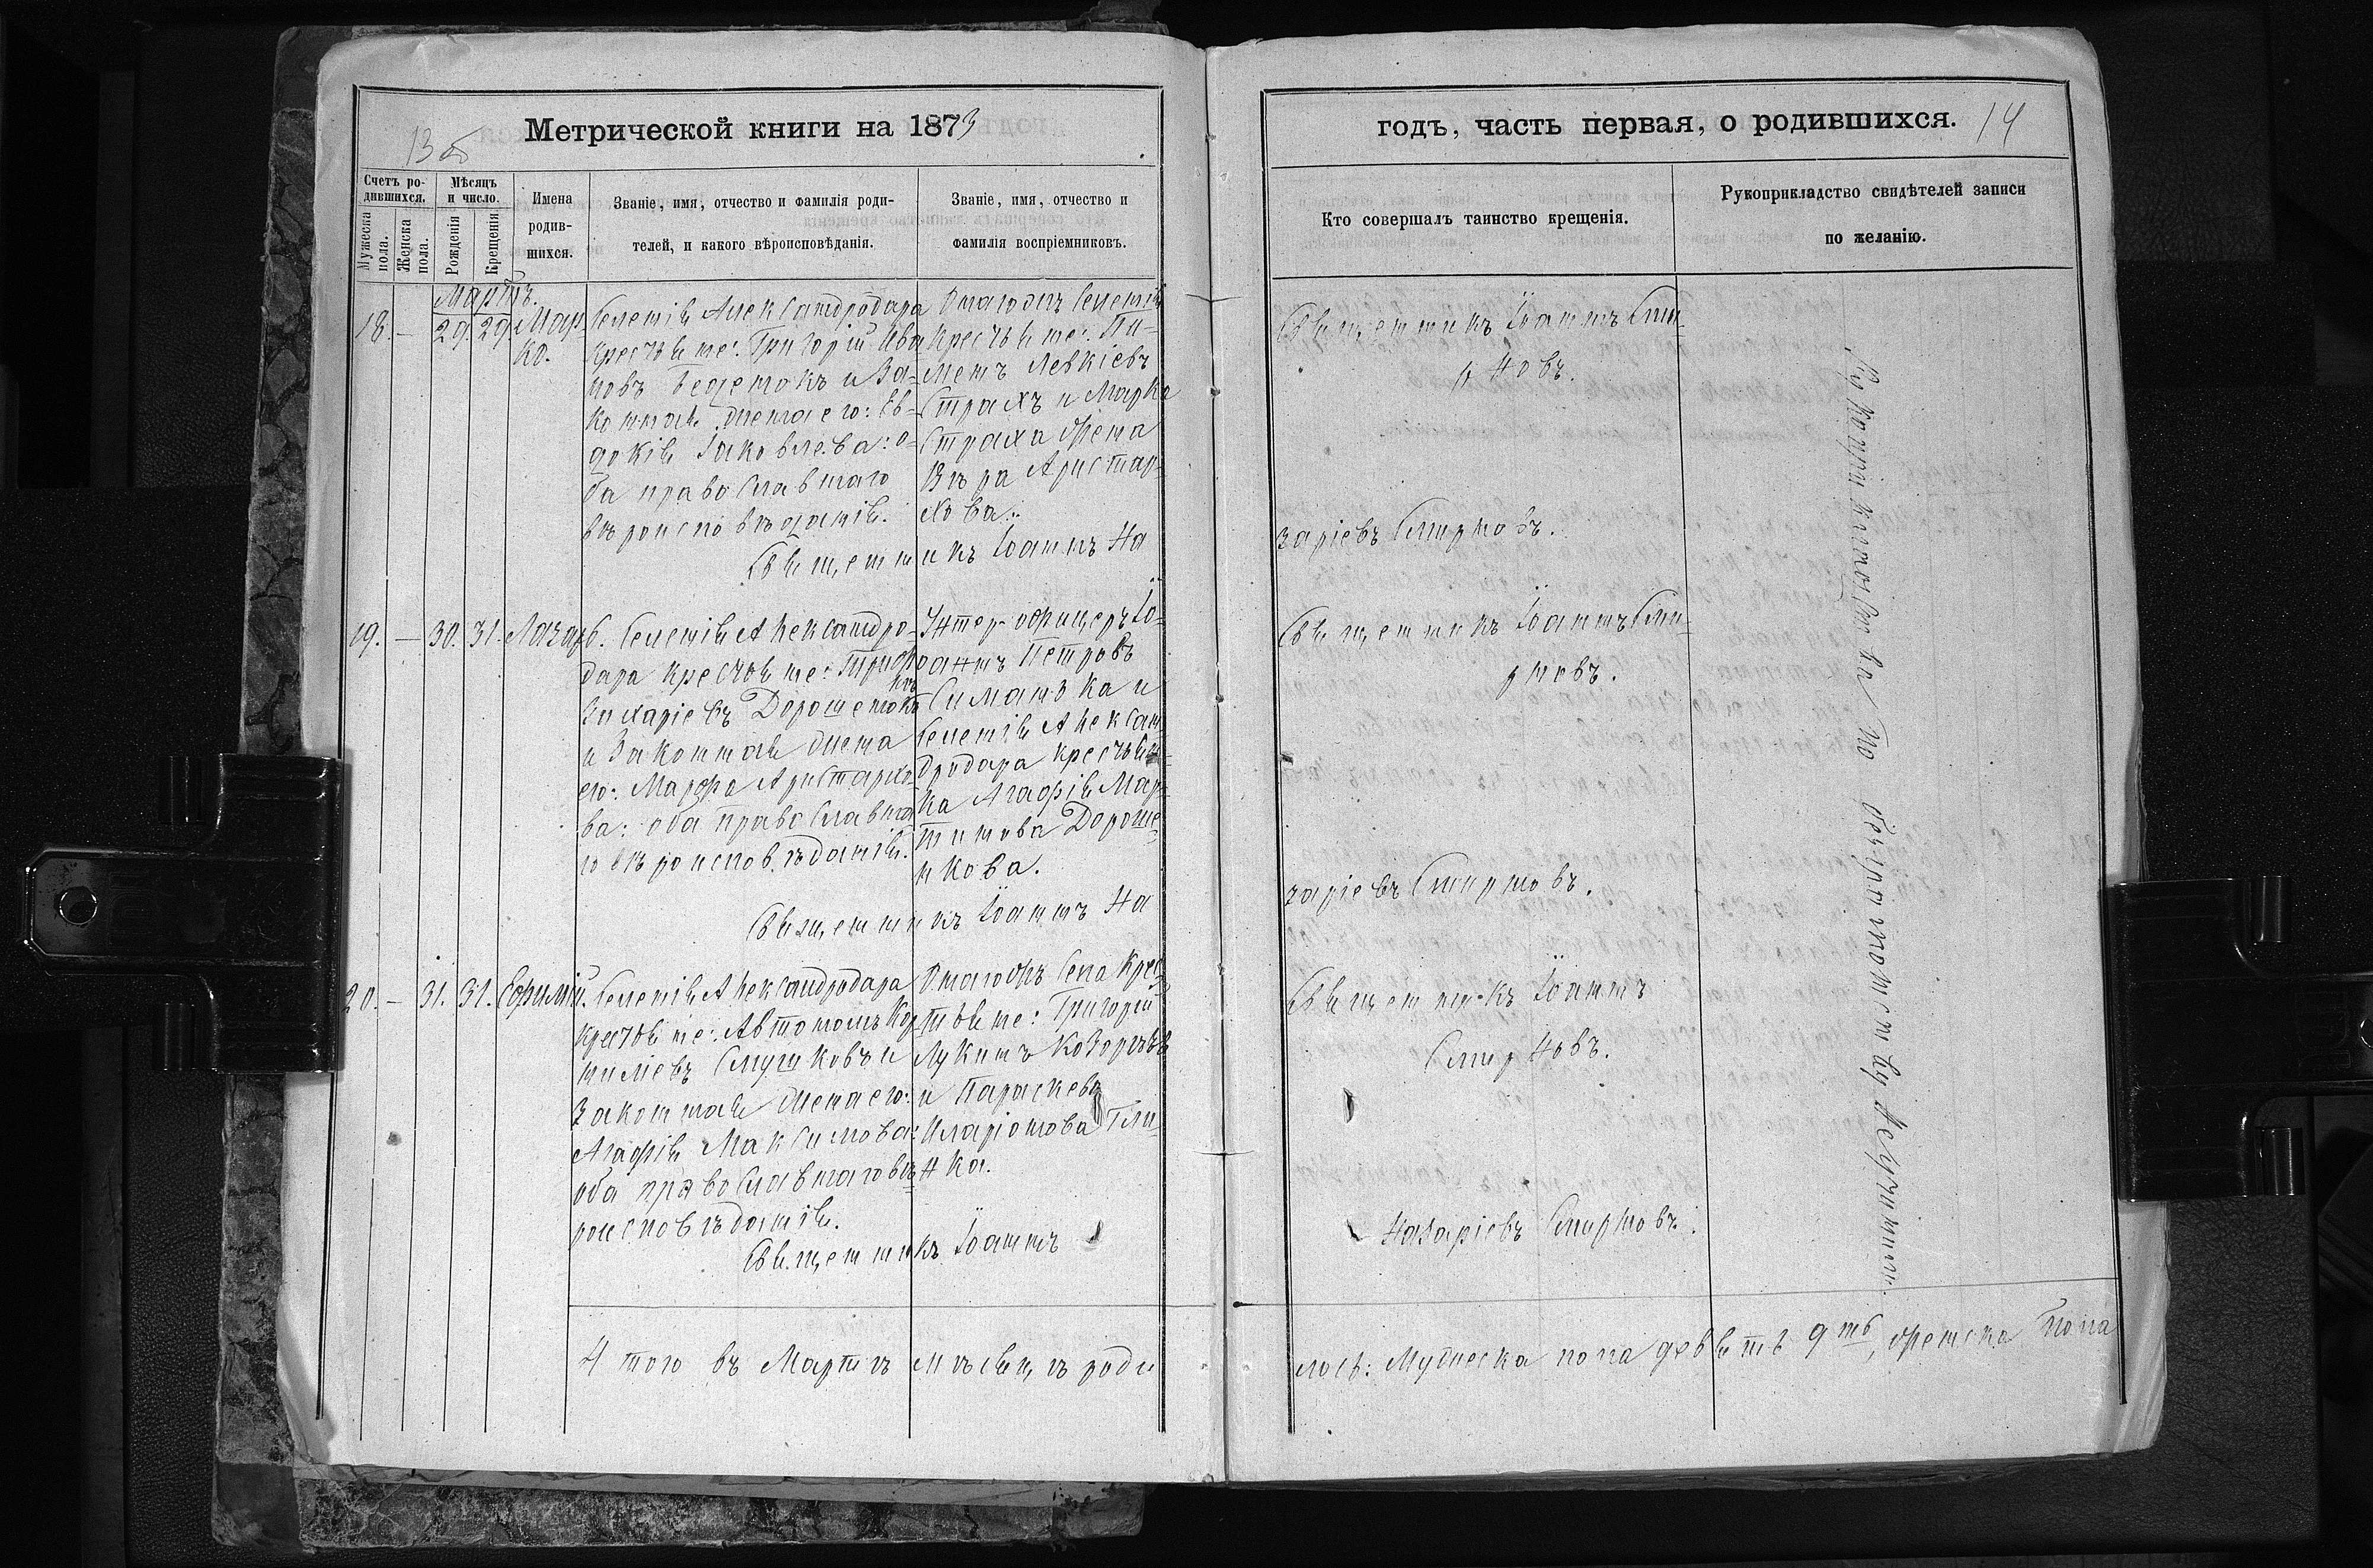 Метрической книги на 1873
13 об
Счетъ ро-
дившихся.
Мужеска
пола.
Женска
пола.
Мѣсяцъ
и число.
Рожденія
Крещенія
Имена
родив-
шихся.
Званіе, имя, отчество и фамилія роди-
телей, и какого вѣроисповѣданія.
Званіе, имя, отчество и
фамилія воспріемниковъ.
Мартъ.
18. — 29. 29. Мар-
ко.
Селенія Александродара
крестьяне: Григорій Ива-
новъ Беденокъ и За-
конная жена его: Ев-
докія Іаковлева: о-
ба православнаго
вѣроисповѣданія.
Тагожъ Селенія
крестьяне: Пи-
менъ Левкіевъ
Страхъ и Марка
Страха жена
Вѣра Аристар-
хова.
Священникъ Іоаннъ На
19. — 30. 31. Лазарь.
Селенія Александро-
дара крестьяне: Трифо
нъ
Захаріевъ Дорошенковъ
и Законная жена
его: Марфа Аристархо-
ва: оба православна
го вѣроисповѣданія.
Унтер-офицеръ Іо-
аннъ Петровъ
Симанзка и
Селенія Алексан-
дродара крестьян-
ка Агафія Мар-
тинова Дороше-
нкова.
Священникъ Іоаннъ На
20. — 31. 31. Ефимій.
Селенія Александродара
крестьяне: Автономъ Кор-
ниліевъ Слушковъ и
Законная жена его:
Агафія Максимова:
оба православнаго вѣ-
роисповѣданія.
Тагожъ Села Крес-
тьяне: Григорій
Лукинъ Козоръзъ
и Параскева
Иларіонова Гли-
нка.
Священникъ Іоаннъ
Итого въ Мартѣ мѣсяцѣ роди
годъ, часть первая, о родившихся. 14
Кто совершалъ таинство крещенія.
Рукоприкладство свидѣтелей записи
по желанію.
Священникъ Іоаннъ Сми-
рновъ.
заріевъ Смирновъ.
Священникъ Іоаннъ Сми-
рновъ.
заріевъ Смирновъ.
Священникъ Іоаннъ
Смирновъ.
Назаріевъ Смирновъ.
лось: Мужеска пола девять 9ть, женска пола